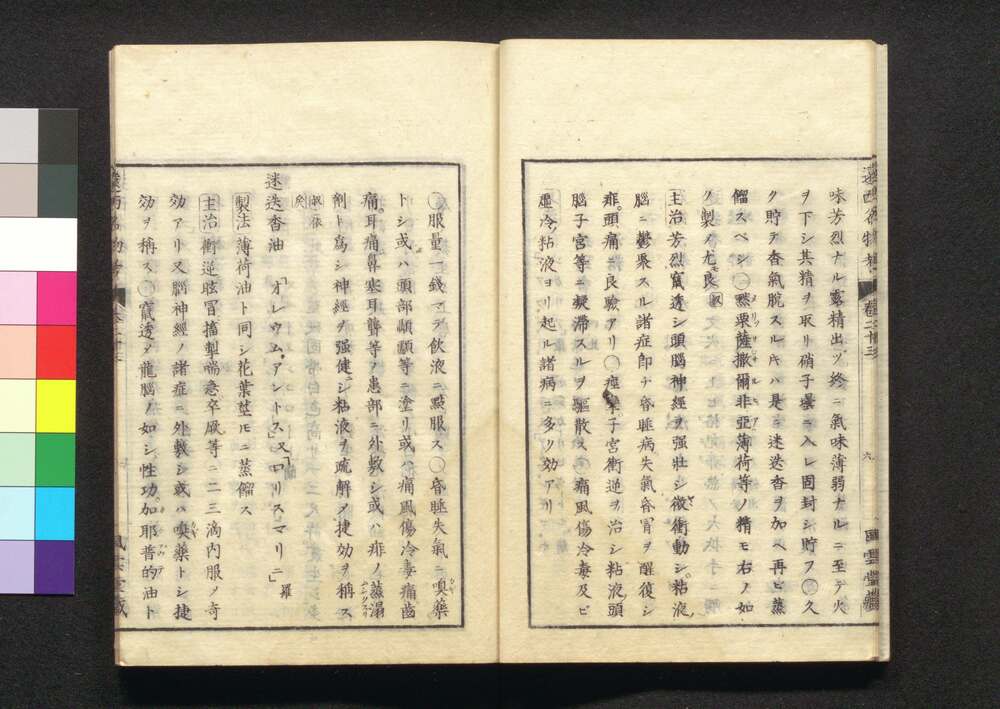 味芳烈ナル露精出ツ終ニ氣味薄弱ナルニ至テ火
ヲ下シ其精ヲ取リ硝子罎ニ入レ固封シ貯フ○久
ク貯ヲ香氣脫スルキハ是ニ迷迭香ヲ加ヘ再ヒ蒸
餾スベシ○黙栗薩撒爾非亞薄荷等ノ精モ右ノ如
ク製ノ尤良
主治芳烈竄透シ頭腦神經ヲ强壯シ微衝動シ粘液
腦ニ鬱聚スル諸症卽チ昏睡病失氣昏冒ヲ醒復シ
痱。頭痛ニ良驗アリ○痙攣子宮衝逆ヲ治シ粘液頭
腦子宮等ニ凝滯スルヲ驅散ス○痛風傷冷毒及ヒ
虛冷粘液ヨリ起ル諸病ニ多ク効アリ
卷二十三
六
○服量一錢マテ飲液ニ點服ス○昏睡失氣ニ嗅藥
トシ或ハ頭部顳顬等ニ塗リ或ハ痛風傷冷毒痛齒
痛。耳痛。鼻塞耳聾等ノ患部ニ外敷シ或ハ痱ノ蒸溻
劑ト爲シ神經ヲ强健シ粘液ヲ疏解ノ捷効ヲ稱ス
迷迭香油「オレウム。アントス」又「ロリスマリニ」羅
製法薄荷油ト同シ花葉莖モニ蒸餾ス
主治衝逆眩冒搐掣喘急卒厥等ニ二三滴內服ノ奇
効アリ又腦神經ノ諸症ニ外敷シ或ハ嗅藥トシ捷
効ヲ稱ス○竄透ノ龍腦ノ如シ性功。加耶普的油ト